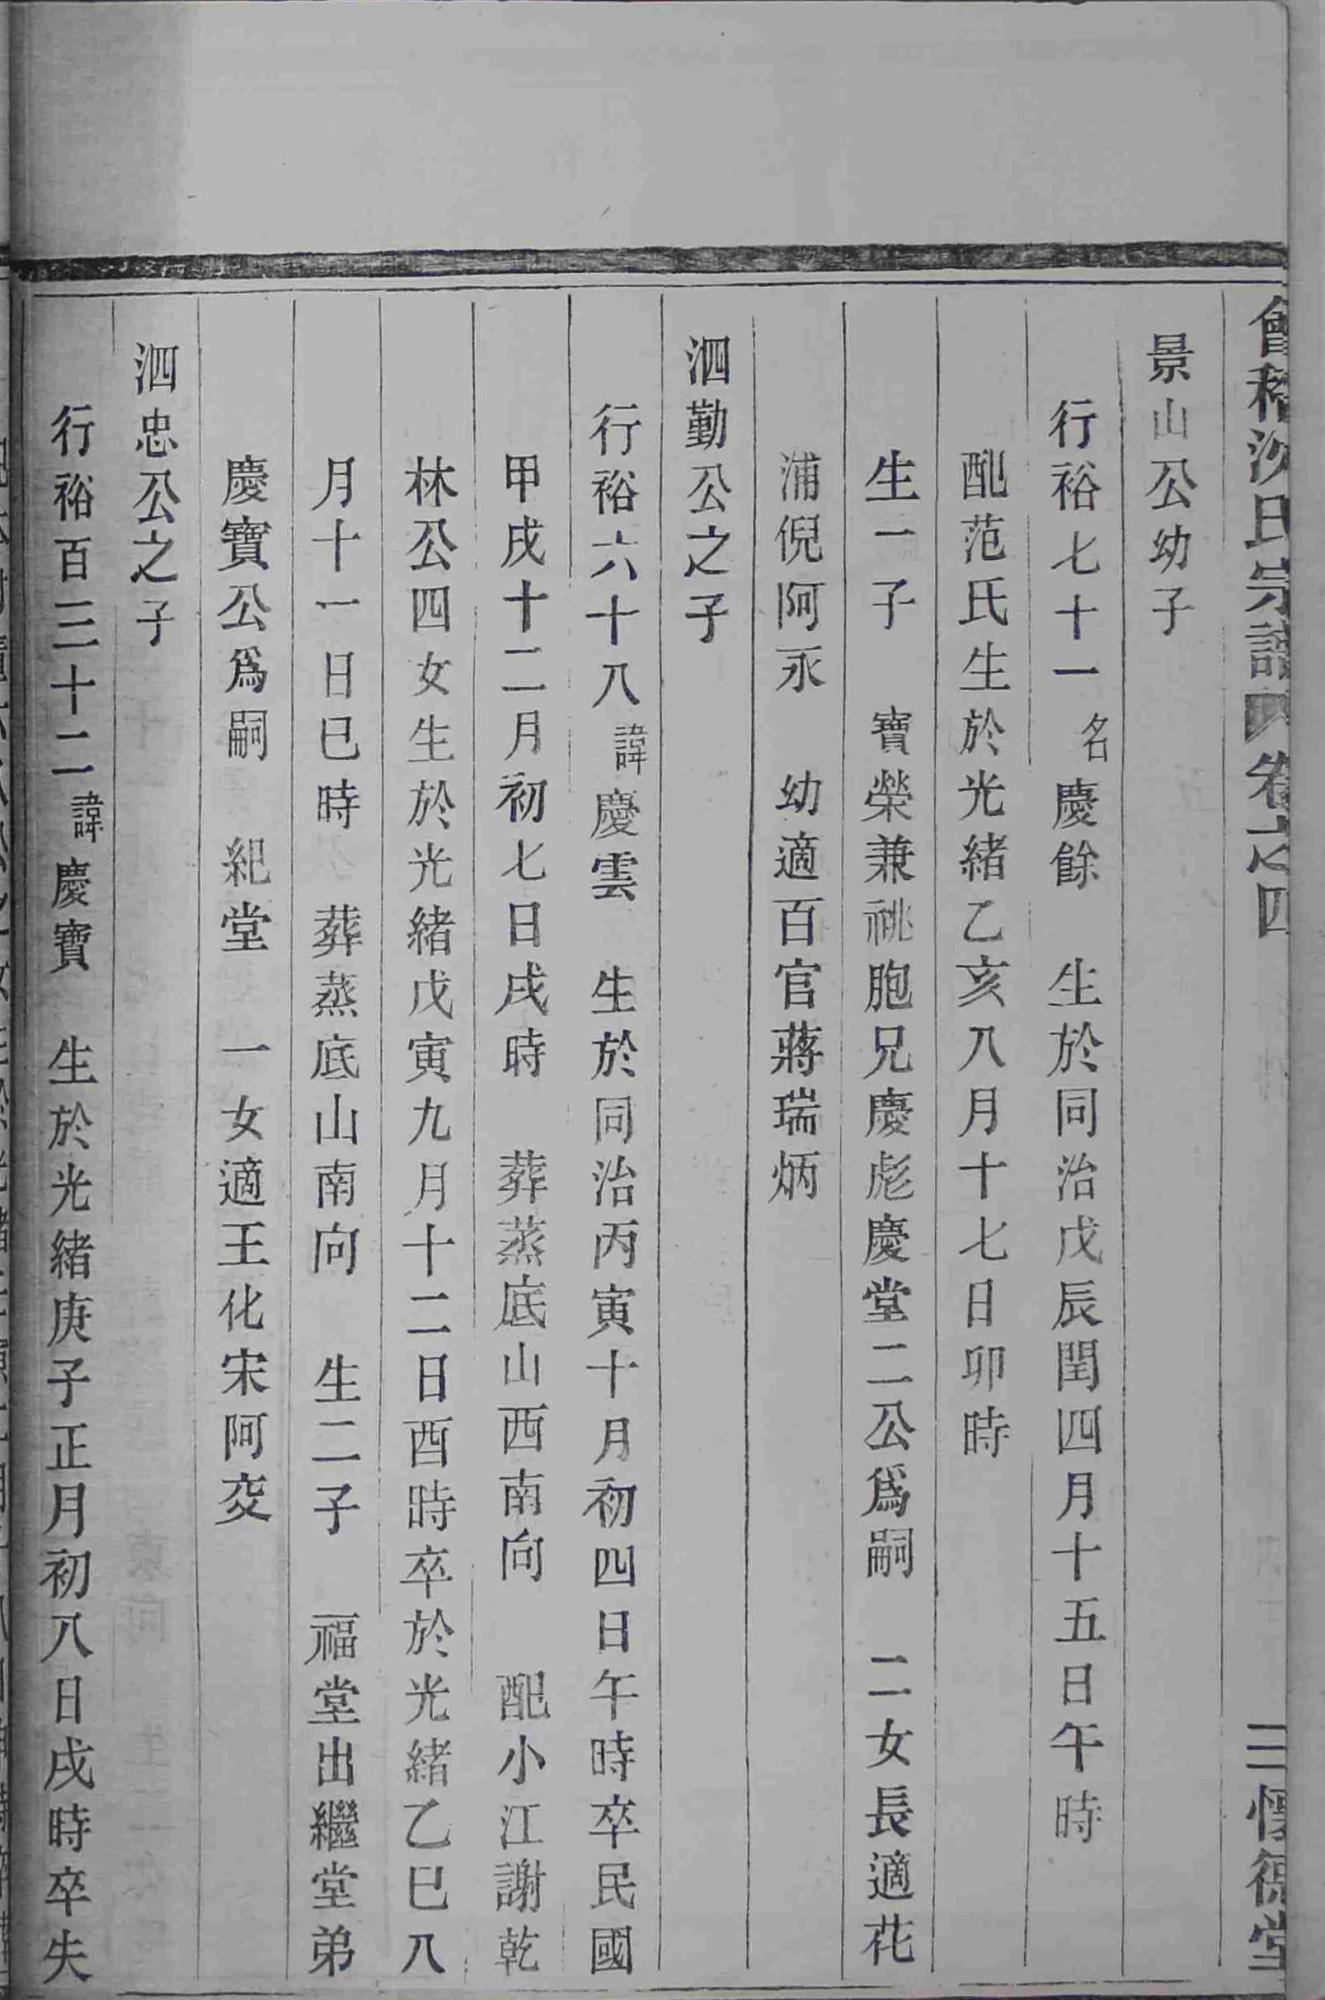 會稽沈氏宗譜 卷之四 三 懷德堂
景山公幼子
行裕七十一名慶餘 生於同治戊辰閏四月十五日午時
配范氏生於光緒乙亥八月十七日卯時
生一子 寶榮兼祧胞兄慶彪慶堂二公爲嗣 二女長適花
浦倪阿永 幼適百官蔣瑞炳
泗勤公之子
行裕六十八諱慶雲 生於同治丙寅十月初四日午時卒民國
甲戌十二月初七日戌時 葬蒸底山西南向 配小江謝乾
林公四女生於光緒戊寅九月十二日酉時卒於光緒乙巳八
月十一日巳時 葬蒸底山南向 生二子 福堂出繼堂弟
慶寶公爲嗣 紀堂 一女適王化宋阿奀
泗忠公之子
行裕百三十二諱慶寶 生於光緒庚子正月初八日戌時卒失